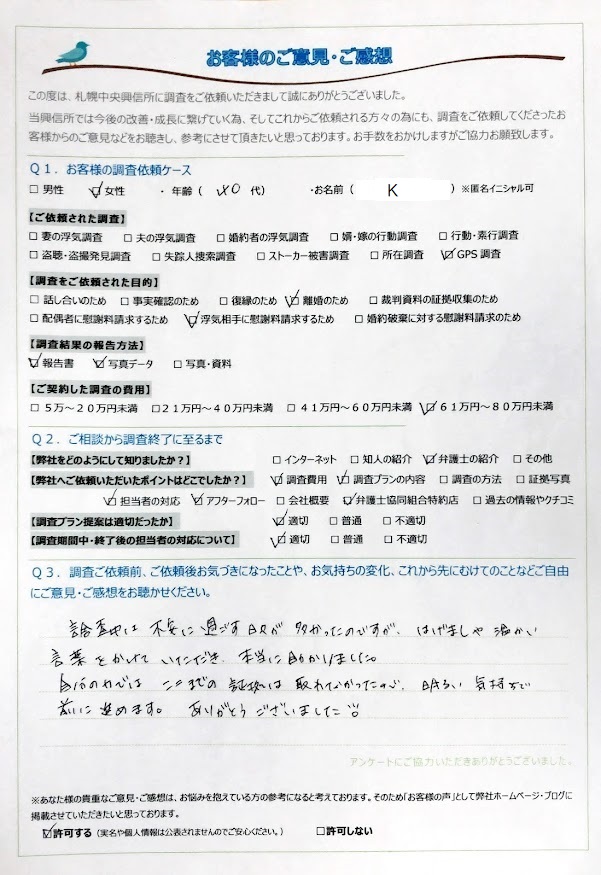 お客様のご意見・ご感想
この度は、札幌中央興信所に調査をご依頼いただきまして誠にありがとうございました。
当興信所では今後の改善・成長に繋げていく為、そしてこれからご依頼される方々の為にも、調査をご依頼してくださったお
客様からのご意見などをお聴きし、参考にさせて頂きたいと思っております。お手数をおかけしますがご協力お願致します。
Q1．お客様の調査依頼ケース
□ 男性 ☑女性 ・ 年齢（ 40 代） ・お名前（ K ）※匿名イニシャル可
【ご依頼された調査】
□ 妻の浮気調査 □ 夫の浮気調査 □ 婚約者の浮気調査 □ 婿・嫁の行動調査 □ 行動・素行調査
□ 盗聴・盗撮発見調査 □ 失踪人捜索調査 □ ストーカー被害調査 □ 所在調査 ☑GPS 調査
【調査をご依頼された目的】
□ 話し合いのため □ 事実確認のため □ 復縁のため ☑ 離婚のため □ 裁判資料の証拠収集のため
□ 配偶者に慰謝料請求するため ☑浮気相手に慰謝料請求するため □ 婚約破棄に対する慰謝料請求のため
【調査結果の報告方法】
☑報告書 ☑ 写真データ □ 写真・資料
【ご契約した調査の費用】
□ 5万～20万円未満 □21万円～40万円未満 □ 41万円～60万円未満 ☑61万円～80万円未満
Q2．ご相談から調査終了に至るまで
【弊社をどのようにして知りましたか？】 □ インターネット □ 知人の紹介 ☑弁護士の紹介 □ その他
【弊社へご依頼いただいたポイントはどこでしたか？】 ☑ 調査費用 ☑ 調査プランの内容 □ 調査の方法 □ 証拠写真
☑ 担当者の対応 ☑ アフターフォロー □ 会社概要 ☑弁護士協同組合特約店 □ 過去の情報やクチコミ
【調査プラン提案は適切だったか】 ☑ 適切 □ 普通 □ 不適切
【調査期間中・終了後の担当者の対応について】 ☑ 適切 □ 普通 □ 不適切
Q3．調査ご依頼前、ご依頼後お気づきになったことや、お気持ちの変化、これから先にむけてのことなどご自由
にご意見・ご感想をお聴かせください。
調査中は 不安に過ごす日々が 多かったのですが、はげましや 温かい
言葉をかけて いただき、本当に助かりました。
自分の力では ここまでの 証拠は 取れなかったので、明るい 気持ちで
前に 進めます。 ありがとう ございました
アンケートにご協力いただきありがとうございました。
※あなた様の貴重なご意見・ご感想は、お悩みを抱えている方の参考になると考えております。そのため「お客様の声」として弊社ホームページ・ブログに
掲載させていただきたいと思っております。
☑許可する（実名や個人情報は公表されませんのでご安心ください。） □許可しない